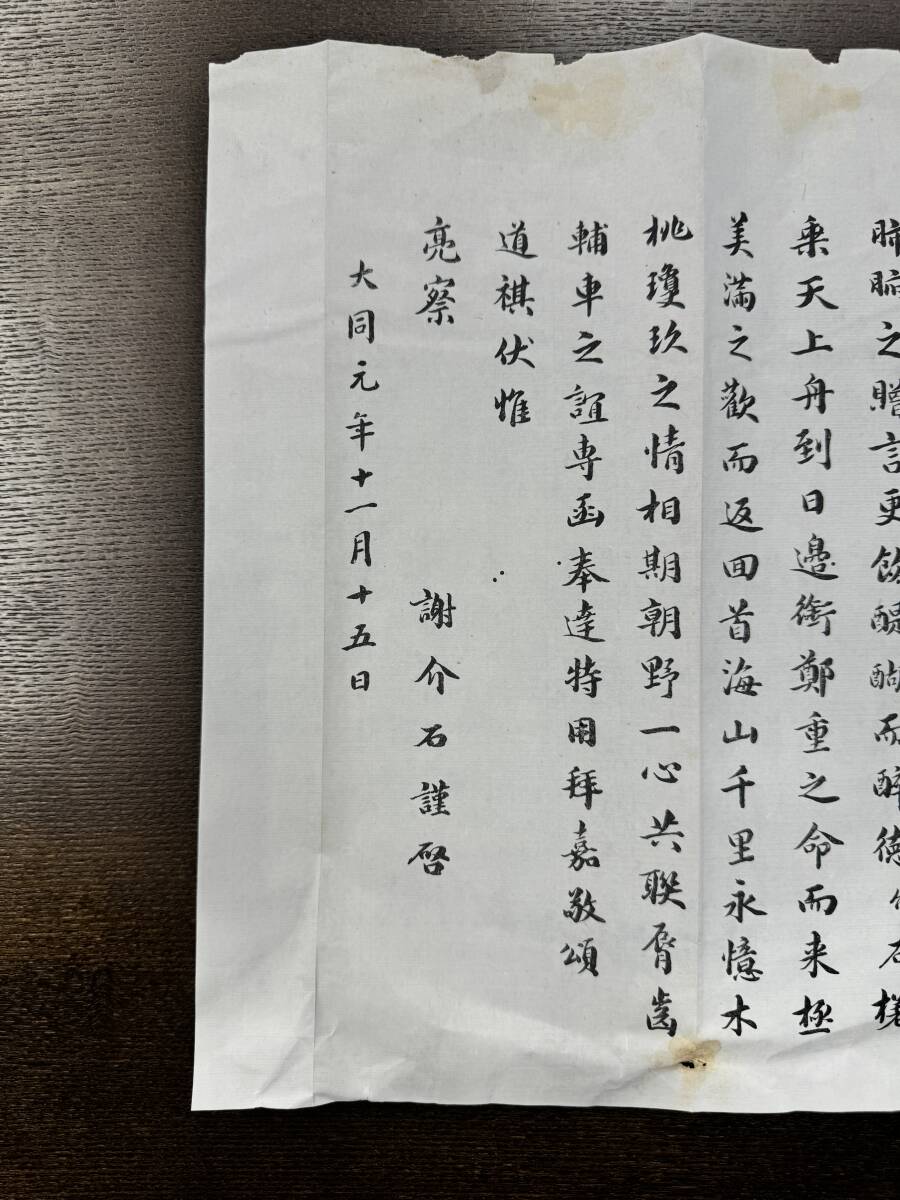 之贈言更飲醍醐而醉德介石槎
乗天上舟到日邊銜鄭重之命而来極
美滿之歡而返回首海山千里永憶木
桃瓊玖之情相期朝野一心共聯脣齒
輔車之誼専函奉達特用拜嘉敬頌
道祺伏惟
亮察
謝介石謹啓
大同元年十一月十五日